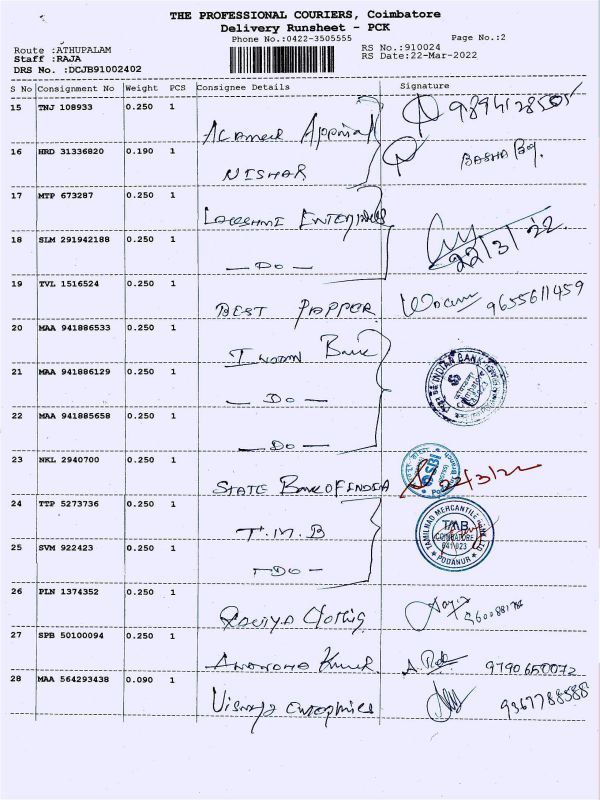 THE PROFESSIONAL COURIERS, Coimbatore
Delivery Runsheet - PCK
Phone No.:0422-3505555 Page No.:2
Route :ATHUPALAM RS No.:910024
Staff :RAJA RS Date:22-Mar-2022
DRS No. :DCJB91002402
S No Consignment No Weight PCS Consignee Details Signature
15 TNJ 108933 0.250 1
16 HRD 31336820 0.190 1 NISHAR BASHA
17 MTP 673287 0.250 1 LAKSHMI ENTERPRISES
18 SLM 291942188 0.250 1 — DO — 22/3/22
19 TVL 1516524 0.250 1 BEST PAPPER 9655611459
20 MAA 941886533 0.250 1 INDIAN Bank
21 MAA 941886129 0.250 1 — DO — INDIAN BANK
22 MAA 941885658 0.250 1 — DO —
23 NKL 2940700 0.250 1 STATE BANK OF INDIA SBI 22/3/22
24 TTP 5273736 0.250 1 T.M.B TAMILNAD MERCANTILE BANK LTD TMB COIMBATORE 641 023 PODANUR
25 SVM 922423 0.250 1 — DO —
26 PLN 1374352 0.250 1
27 SPB 50100094 0.250 1 Kumar 9790650072
28 MAA 564293438 0.090 1 9367788588